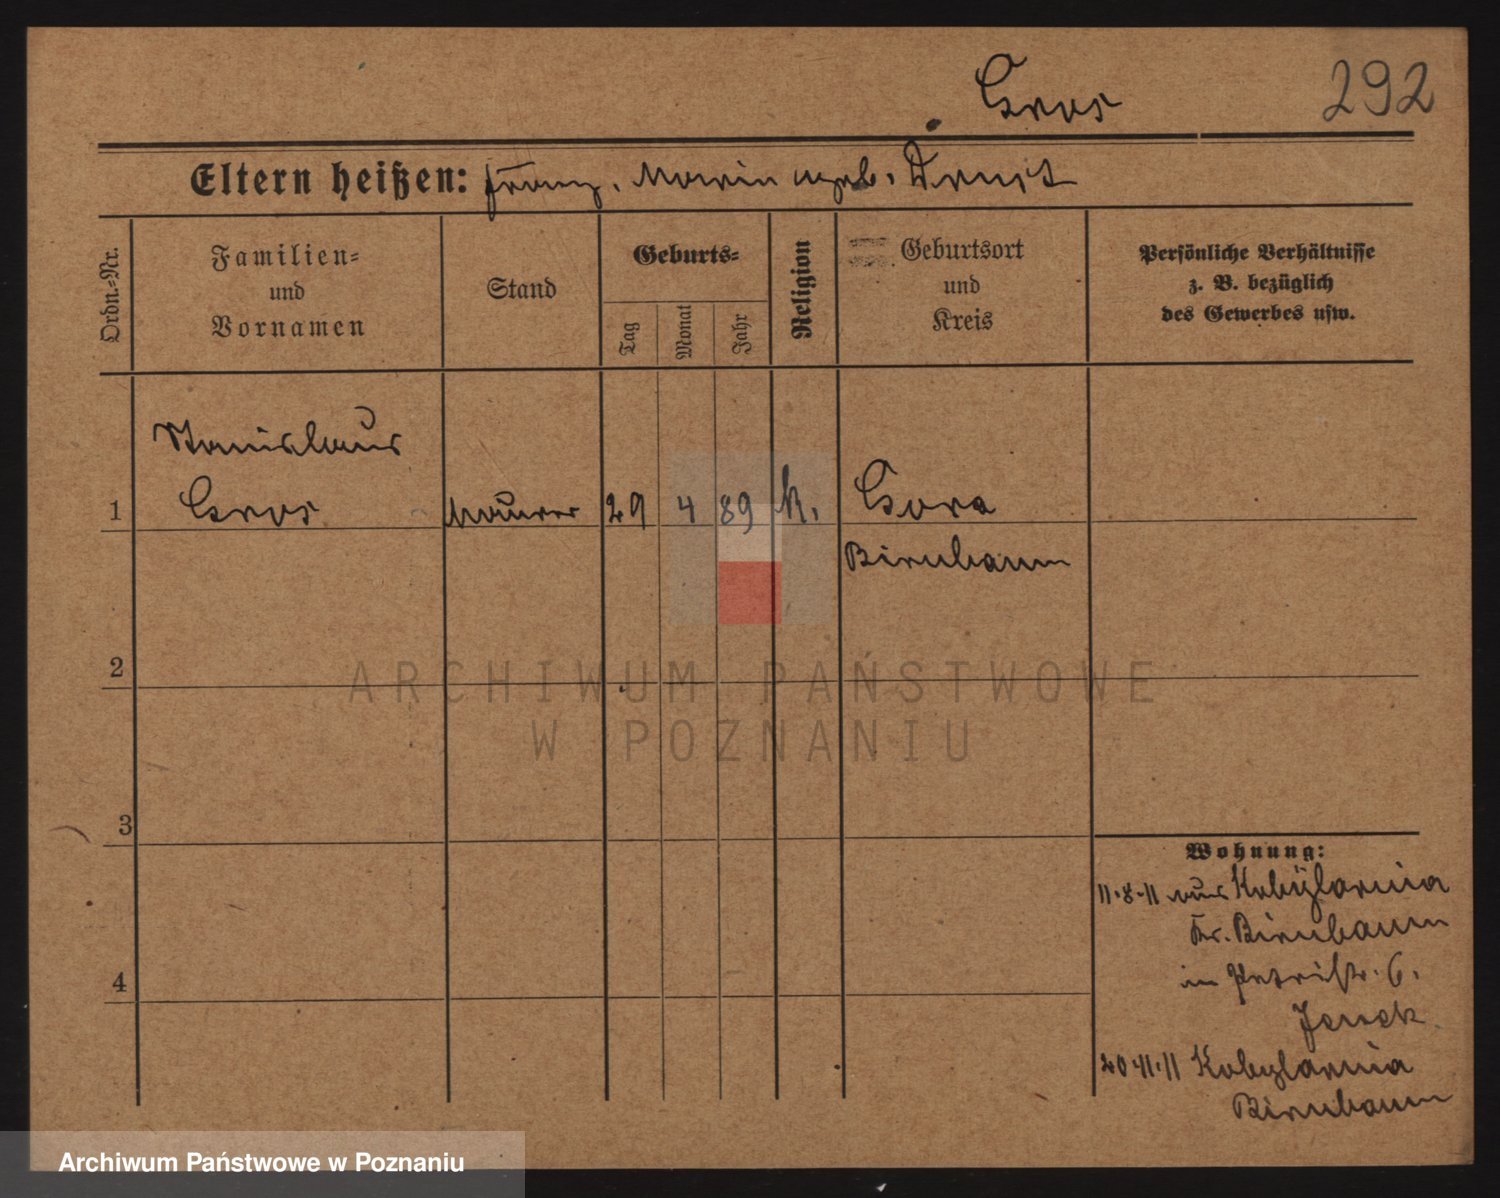 Gros
292
Eltern heißen: Franz, Maria geb.
Ordn.-Nr.
Familien-
und
Vornamen
Stand
Geburts-
Tag
Monat
Jahr
Religion
Geburtsort
und
Kreis
Persönliche Verhältnisse
z. B. bezüglich
des Gewerbes usw.
Stanislaus
1 Gros Maurer 29 4 89 K. Gora
Birnbaum
2
3
4
Wohnung:
11.8.11 aus Kobylarnia
Kr. Birnbaum
in Petristr. 6.
20.11.11 Kobylarnia
Birnbaum
ARCHIWUM PAŃSTWOWE
W POZNANIU
Archiwum Państwowe w Poznaniu